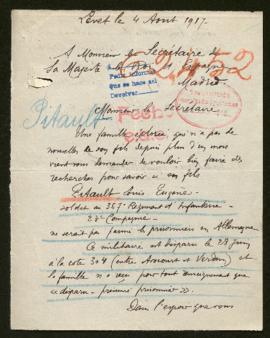 Levet le 4 Aout 1917.
A Monsieur le Secrétaire de
Sa Majesté le Roi d'Espagne
Madrid
Para informar
que se hace así
Devolver
Pitault
Monsieur le Secrétaire
Une famille éplorée qui n'a pas de
nouvelles de son fils depuis plus d'un mois
vient vous demander de vouloir bien faire des
recherches pour savoir si son fils
Pitault Louis Eugène
soldat au 367e Régiment d'Infanterie
23e Compagnie
ne serait pas parmi les prisonniers en Allemagne
Ce militaire est disparu le 28 juin
à la cote 304 (entre Avocourt et Verdun) et
sa famille n'a reçu pour tout renseignement que
ce disparu - présumé prisonnier
Dans l'espoir que vous